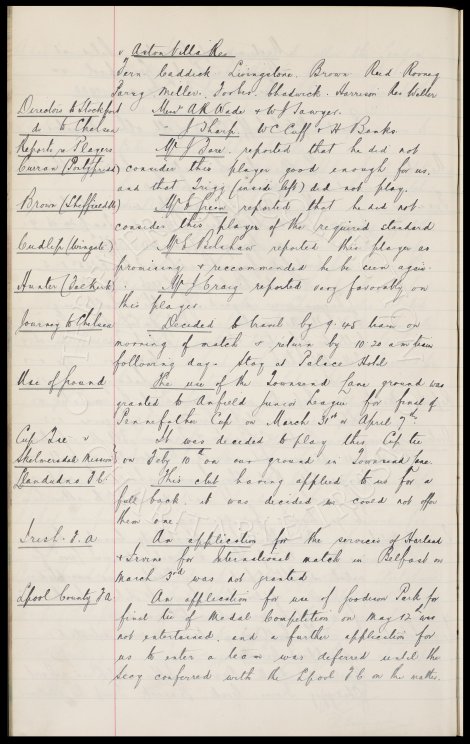 v Aston Villa Res
Fern Caddick Livingstone. Brown Reid Rooney
Parry Miller. Foster. Chadwick. Harrison Res Weller
Directors to Stockport Messrs A R Wade & W J Sawyer.
do to Chelsea - J Tharp. W C Cuff & H Banks
Reports re Players Mr J Fare. reported that he did not
Curran (Pontypridd) consider this player good enough for us,
and that Trigg (inside left) did not play.
Brown (Sheffield W) Mr E Green reported that he did not
consider this player of the required standard
Cudlip (Wingate) Mr E Belshaw reported this player as
promising & reccommended he be seen again.
Hunter (Falkirk) Mr J Craig reported very favorably on
this player.
Journey to Chelsea Decided to travel by 9.45 train on
morning of match & return by 10.20 a m train
following day. Stay at Palace Hotel
Use of ground The use of the Townsend Lane ground was
granted to Anfield Junior League for final of
Pennefather Cup on March 31st or April 7th.
Cup Tie v It was decided to play this Cup tie
Skelmersdale Mission on Feby 10th on our ground in Townsend Lane.
Llandudno F.C. This club having applied to us for a
full back, it was decided we could not offer
them one.
Irish F. A An application for the services of Harland
& Irvine for International match in Belfast on
March 3rd was not granted
Lpool County F A An application for use of Goodison Park for
final tie of Medal Competition on May 12th was
not entertained, and a further application for
us to enter a team was deferred until the
Secy conferred with the Lpool F C on the matter.